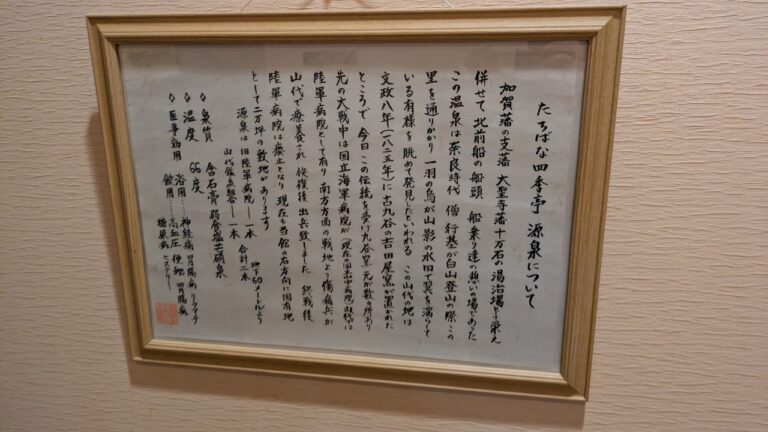 たちばな四季亭 源泉について
加賀藩の支藩 大聖寺藩十万石の湯治場と栄え
併せて 北前船の船頭 船乗り達の憩いの場であった
この温泉は奈良時代 僧 行基が白山登山の際 この
里を通りかかり 一羽の烏が山影の水田で翼を濡らして
いる有様を眺めて発見したといわれる この山代の地は
文政八年(一八二五年)に古九谷の吉田屋窯が置かれた
ところで 今日 この伝統を受け九谷窯元が数ヵ所あり
先の大戦中は国立海軍病院が(現在の国立山中病院)山代には
陸軍病院として有り 南方方面の戦地より傷病兵が
山代で療養され 恢復後 出兵致しました 終戦後
陸軍病院は廃止となり 現在も当館の右方向に国有地
として二万坪の敷地があります
源泉は 旧陸軍病院 一本
山代鉱泉組合 一本 合計二本
地下60メートルより
◊ 泉質 含石膏弱食塩芒硝泉
◊ 温度 66度
◊ 医事効用 浴用……神経病 胃腸病 リウマチ
飲用……高血圧 便秘 胃腸病
糖尿病 ヒステリー